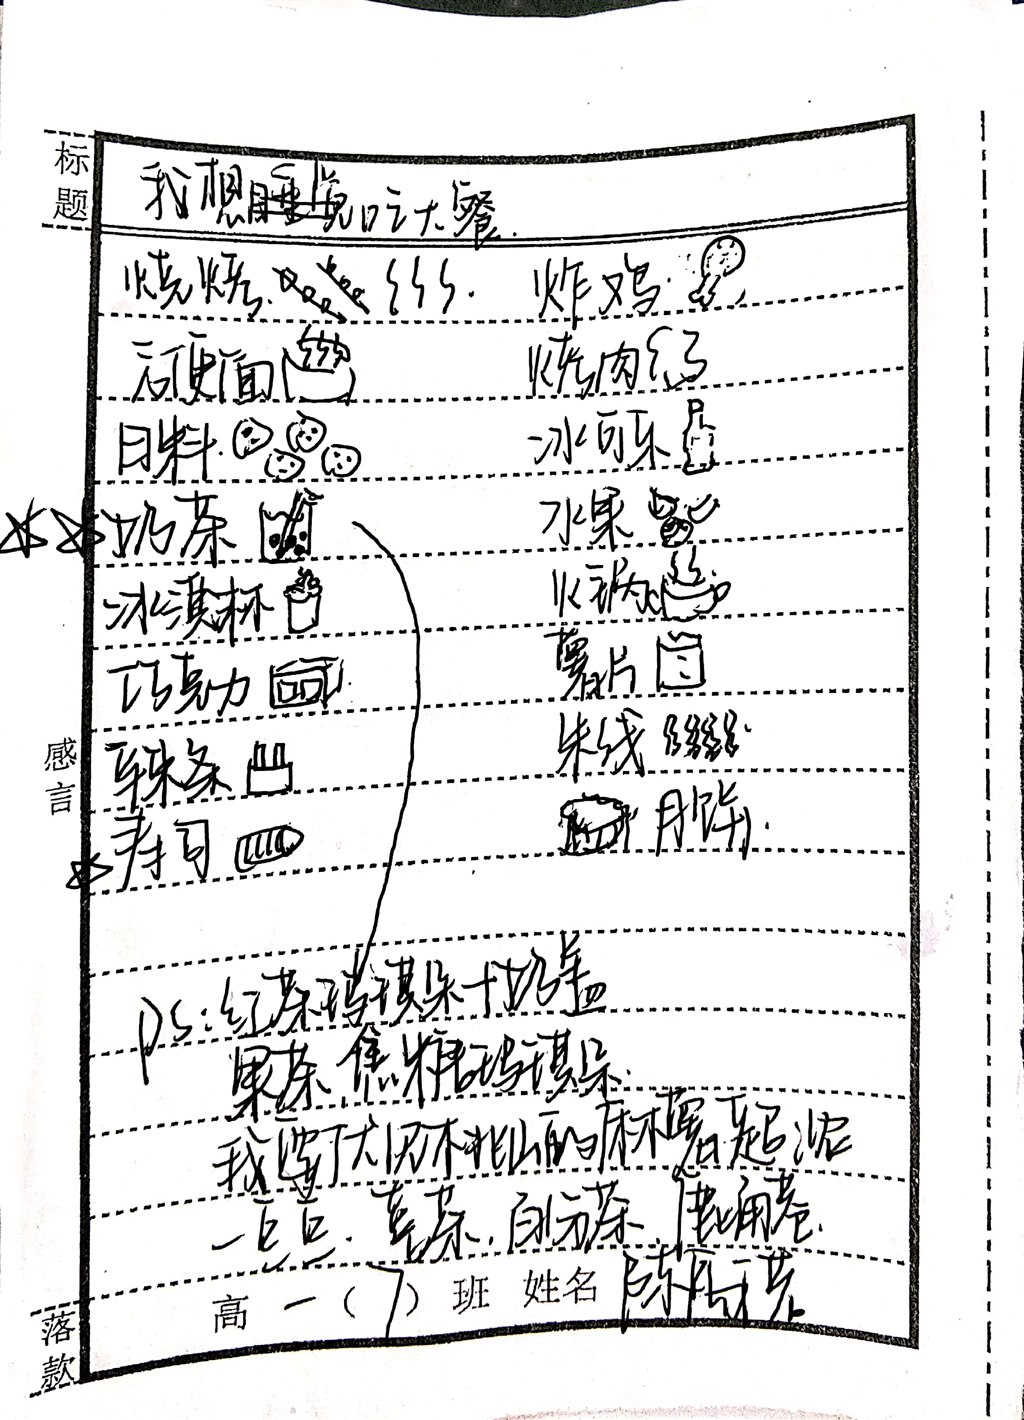 标题
我想睡觉吃大餐.
烧烤. 炸鸡.
方便面 烤肉
日料. 冰可乐
奶茶 水果
冰淇淋 火锅
巧克力 薯片
感言
辣条 米线
寿司 月饼.
ps:红茶玛琪朵+奶盖
果茶、焦糖玛琪朵.
我要 的麻薯
一点点. 喜茶. 鹿角巷.
落款
高一(7)班 姓名 陈